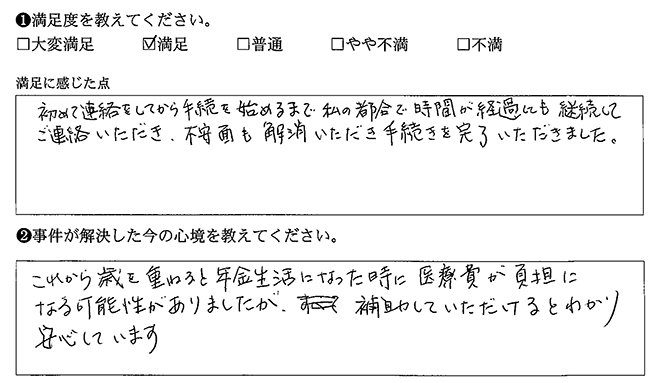 ❶満足度を教えてください。
□大変満足 ☑満足 □普通 □やや不満 □不満
満足に感じた点
初めて連絡をしてから手続を始めるまで私の都合で時間が経過にも継続して
ご連絡いただき、不安面も解消いただき手続きを完了いただきました。
❷事件が解決した今の心境を教えてください。
これから歳を重ねると年金生活になった時に医療費が負担に
なる可能性がありましたが、補助していただけるとわかり
安心しています